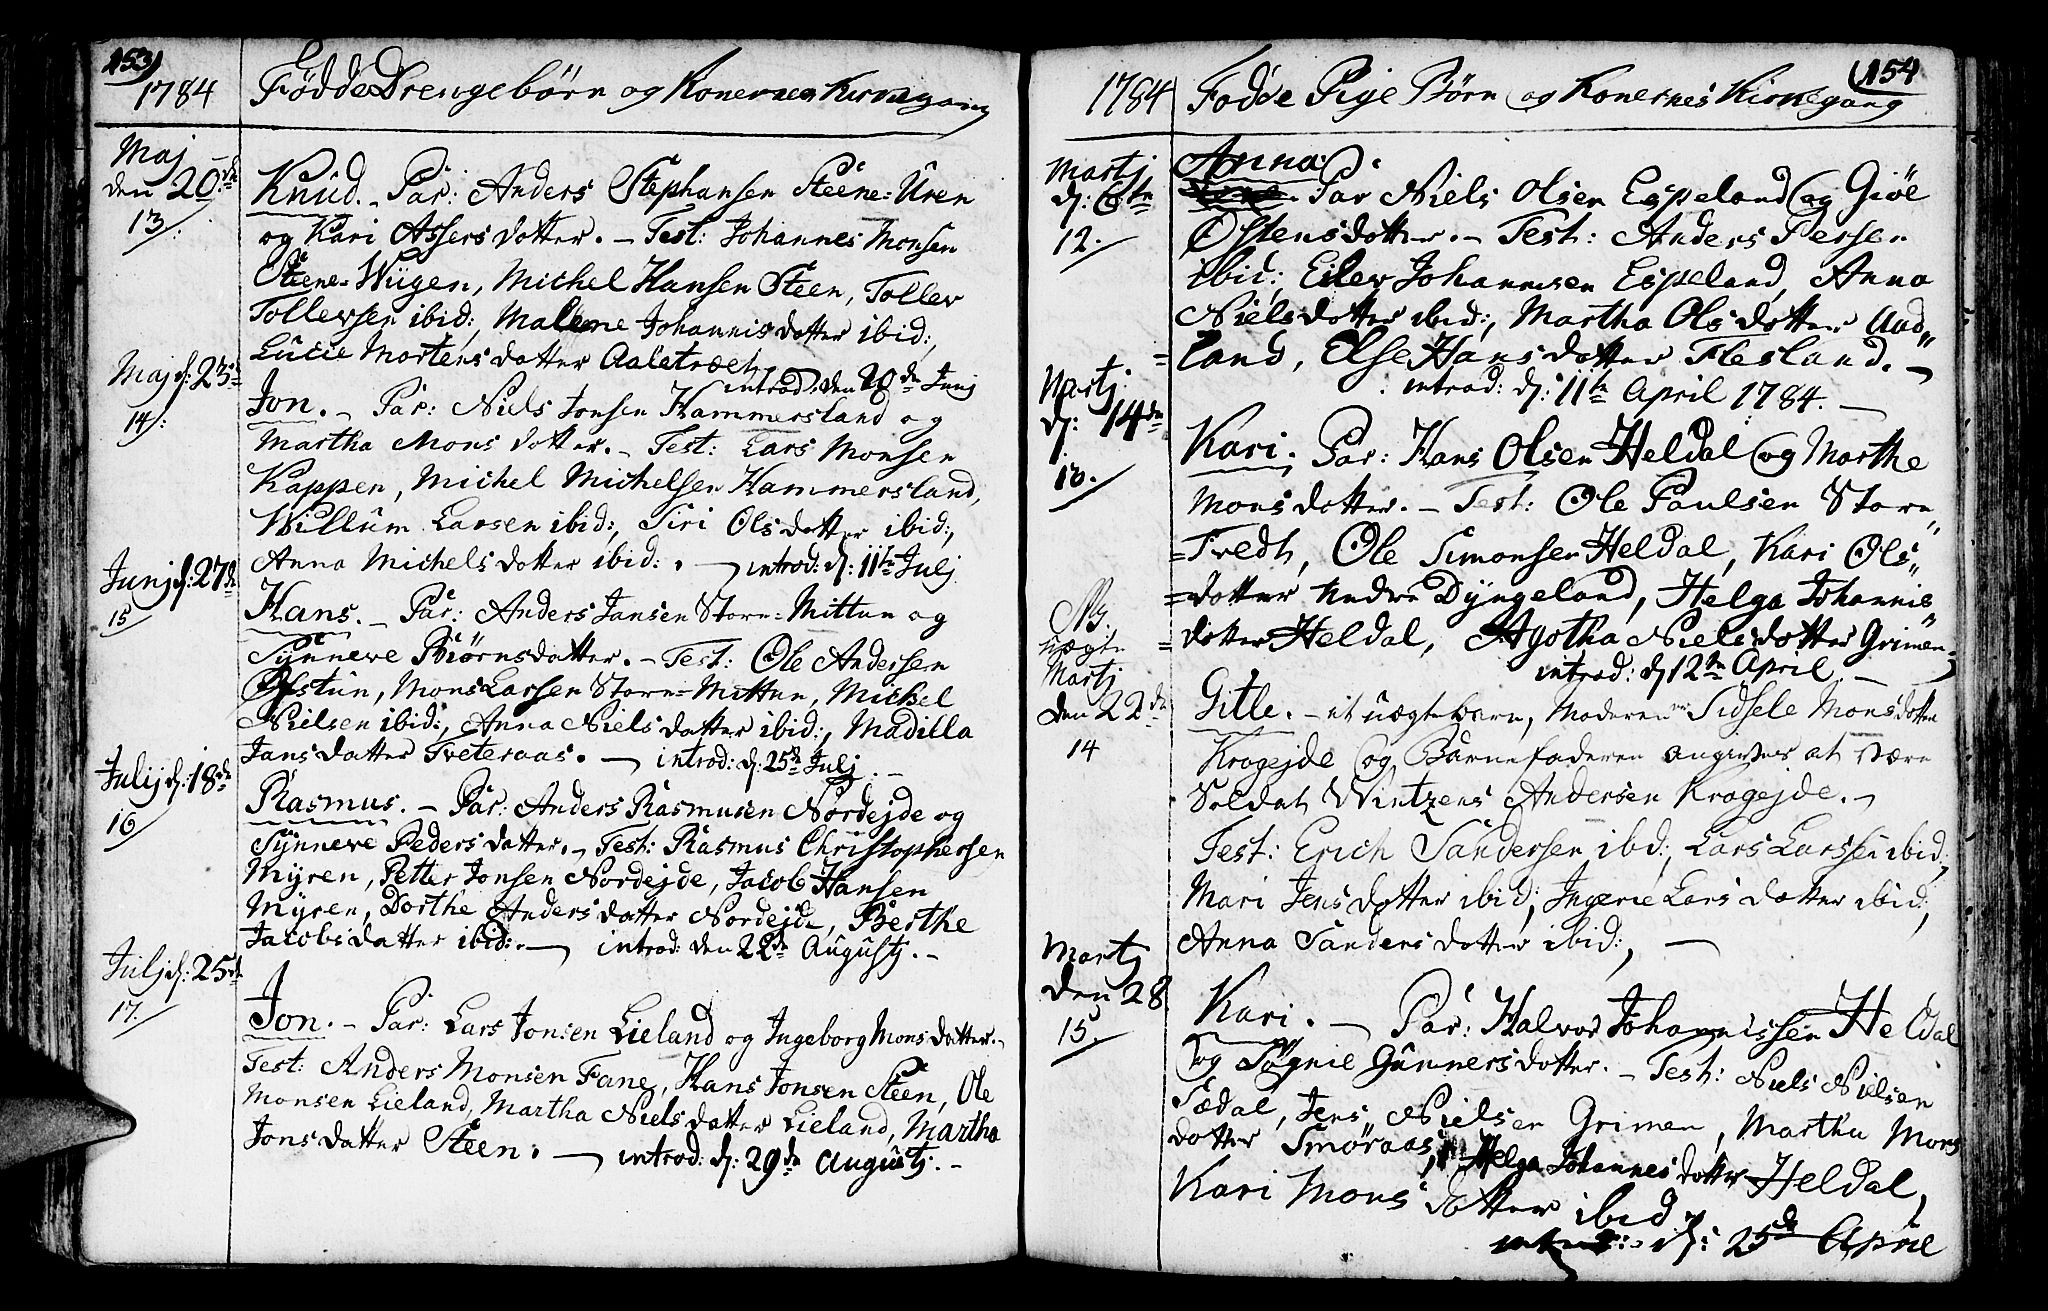 153)
1784 Fødde Drengebørn og Konernes Kirkegang
Maj
den 20de
13/:
Knud. – Par: Anders Stephansen Steene-Uren
og Kari Assersdotter. – Test: Johannes Monsen
Steene-Wiigen, Michel Hansen Steen, Tollev
Tollevsen ibid:, Malene Johannisdotter ibid:,
Lucie Mortensdotter Aaletræet,
introd: den 20de Junj
Maj d: 23de
14/:
Jon. – Par: Niels Jonsen Hammersland og
Martha Monsdotter. – Test: Lars Monsen
Kappen, Michel Michelsen Hammersland,
Willum Larsen ibid:, Siri Olsdotter ibid:,
Anna Michelsdotter ibid:. – introd: d: 11te Julj
Junj d: 27de
15/
Hans. – Par: Anders Jansen Store-Mittun og
Synneve Biørnsdatter. – Test: Ole Andersen
Øfstun, Mons Larsen Store-Mittun, Michel
Nielsen ibid:, Anna Nielsdatter ibid:, Madilla
Jansdatter Tveteraas. – introd: d: 25de Julj. –
Julij d: 18de
16/
Rasmus. – Par: Anders Rasmusen Nordejde og
Synneve Pedersdatter. – Test: Rasmus Christophersen
Myren, Petter Jonsen Nordejde, Jacob Hansen
Myren, Dorthe Andersdatter Nordejde, Berthe
Jacobsdatter ibid:. – introd: den 22de Augustj. –
Julj d: 25de
17./
Jon. – Par: Lars Jonsen Lieland og Ingeborg Monsdatter. –
Test: Anders Monsen Fane, Hans Jonsen Steen, Ole
Monsen Lieland, Martha Nielsdatter Lieland, Martha
Jonsdatter Steen. – introd: d: 29de Augustj. –
(154
1784 Fødde Pige Børn og Konernes Kirkegang
Martj
d: 6te
12./
Anna.
Par Niels Olsen Espeland og Giøe
Østensdotter. – Test: Anders Persen
ibid:, Eilev Johannesen Espeland, Anna
Nielsdotter ibid:, Martha Olsdotter Aad„
=land, Else Hansdotter Flesland. –
introd: d: 11te April 1784. –
Martj
d: 14de
13./
Kari. Par: Hans Olsen Heldal og Marthe
Monsdotter. – Test: Ole Paulsen Store„
=Tvedt, Ole Simonsen Heldal, Kari Ols„
=dotter Dyngeland, Helga Johannis„
=dotter Heldal, Agotha Nielsdotter Grimen,
introd: d 12te April. –
NB.
Uægte
Martj
den 22de
14
Gitle. – et uægte barn, Moderen Sidsele Monsdotter
Krogejde og Barnefaderen angives at være
Soldat Wintzens Andersen Krogejde. –
Test: Erich Sandersen ibd:, Lars Larssen ibid:,
Mari Jensdotter ibid:, Ingerie Larsdatter ibid:,
Anna Sandersdotter ibid:, –
Martj
den 28
15./
Kari. – Par: Halvor Johannissen Heldal
og Sygnie Gunnersdotter. – Test: Niels Nielsen
Sædal, Jens Nielsen Grimen, Martha Mons
dotter Smøraas, Helga Johannesdotter Heldal,
Kari Monsdotter ibid
introd: d: 25de April